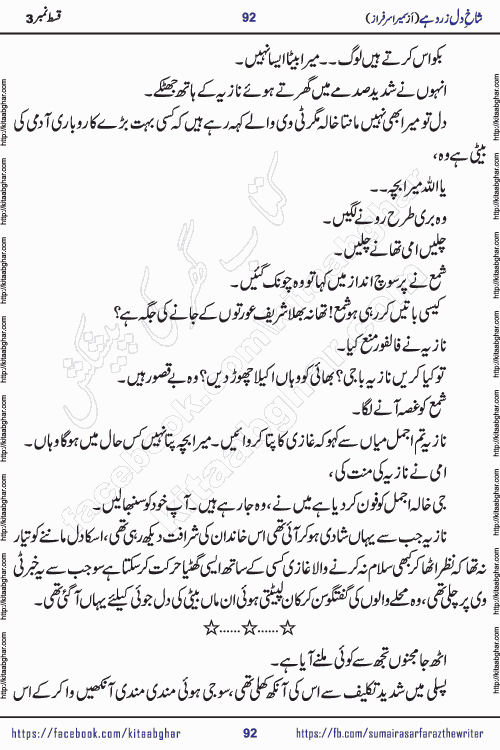 شاخِ دل زرد ہے (از سُمیرا سرفراز) 92 قسط نمبر 3
بکواس کرتے ہیں لوگ۔۔ میرا بیٹا ایسا نہیں۔
انہوں نے شدید صدمے میں گھرتے ہوئے نازیہ کے ہاتھ جھٹکے۔
دل تو میرا بھی نہیں مانتا خالہ مگر ٹی وی والے کہہ رہے ہیں کہ کسی بہت بڑے کاروباری آدمی کی
بیٹی ہے وہ،
یا اللہ میرا بچہ۔۔
وہ بری طرح رونے لگیں۔
چلیں امی تھانے چلیں۔
شمع نے پرسوچ انداز میں کہا تو وہ چونک گئیں۔
کیسی باتیں کر رہی ہو شمع! تھانہ بھلا شریف عورتوں کے جانے کی جگہ ہے؟
نازیہ نے فالفور منع کیا۔
تو کیا کریں نازیہ باجی؟ بھائی کو وہاں اکیلا چھوڑ دیں؟ وہ بے قصور ہیں۔
شمع کو غصہ آنے لگا۔
نازیہ تم اجمل میاں سے کہو کہ غازی کا پتا کروائیں۔ میرا بچہ پتا نہیں کس حال میں ہوگا وہاں۔
امی نے نازیہ کی منت کی،
جی خالہ اجمل کو فون کر دیا ہے میں نے، وہ جا رہے ہیں۔ آپ خود کو سنبھالیں۔
نازیہ جب سے یہاں شادی ہو کر آئی تھی اس خاندان کی شرافت دیکھ رہی تھی، اسکا دل ماننے کو تیار
نہ تھا کہ نظر اٹھا کر کبھی سلام نہ کرنے والا غازی کسی کے ساتھ ایسی گھٹیا حرکت کر سکتا ہے سو جب سے یہ خبر ٹی
وی پر چلی تھی، وہ محلے والوں کی گفتگو سن کر کان لپیٹتی ہوئی ان ماں بیٹی کی دل جوئی کیلئے یہاں آ گئی تھی۔
☆......☆......☆
اٹھ جا مجنوں تجھ سے کوئی ملنے آیا ہے۔
پسلی میں شدید تکلیف سے اس کی آنکھ کھلی تھی، سوجی ہوئی مندی مندی آنکھیں وا کر کے اس
https://facebook.com/kitaabghar 92 https://fb.com/sumairasarfarazthewriter
http://kitaabghar.com
کتاب گھر کی پیشکش
facebook.com/kitaabghar
kitaabghar.com